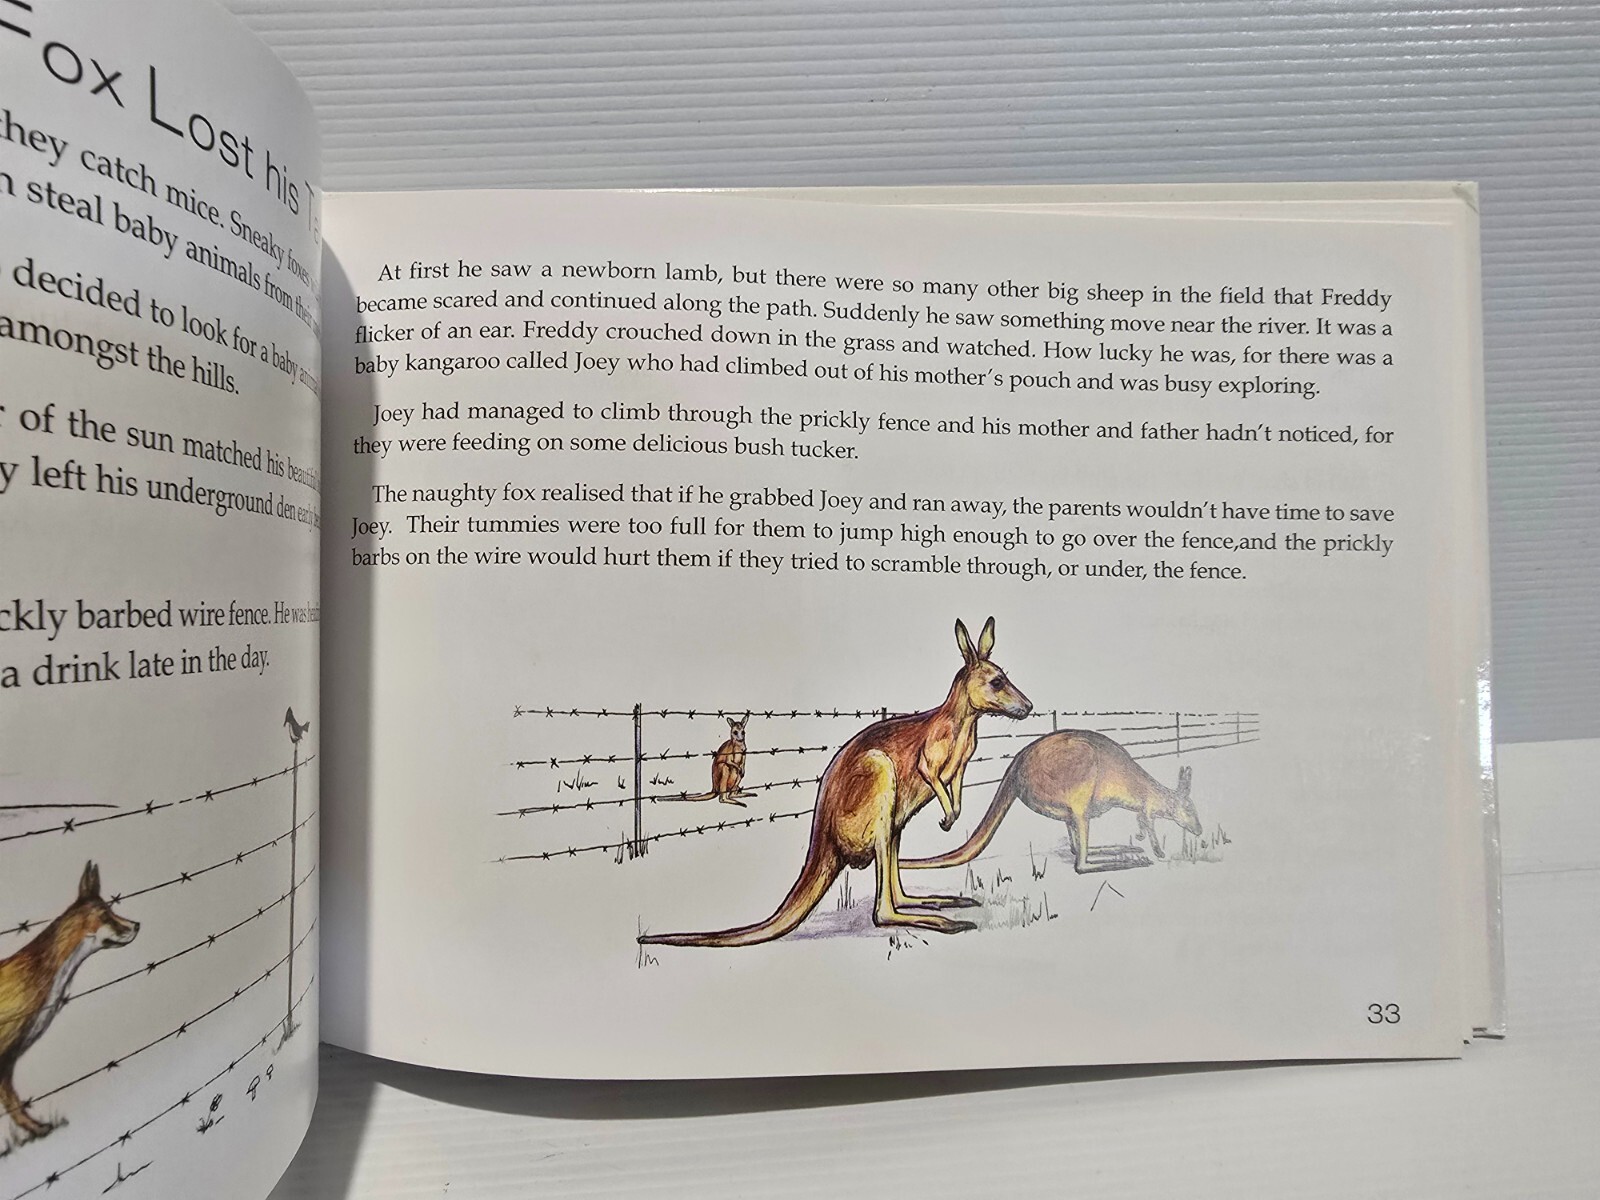 Fox Lost his
they catch mice. Sneaky foxes
steal baby animals from their
decided to look for a baby
amongst the hills.
of the sun matched his
left his underground den early
barbed wire fence. He was
a drink late in the day.
At first he saw a newborn lamb, but there were so many other big sheep in the field that Freddy
became scared and continued along the path. Suddenly he saw something move near the river. It was a
flicker of an ear. Freddy crouched down in the grass and watched. How lucky he was, for there was a
baby kangaroo called Joey who had climbed out of his mother's pouch and was busy exploring.
Joey had managed to climb through the prickly fence and his mother and father hadn't noticed, for
they were feeding on some delicious bush tucker.
The naughty fox realised that if he grabbed Joey and ran away, the parents wouldn't have time to save
Joey. Their tummies were too full for them to jump high enough to go over the fence,and the prickly
barbs on the wire would hurt them if they tried to scramble through, or under, the fence.
33